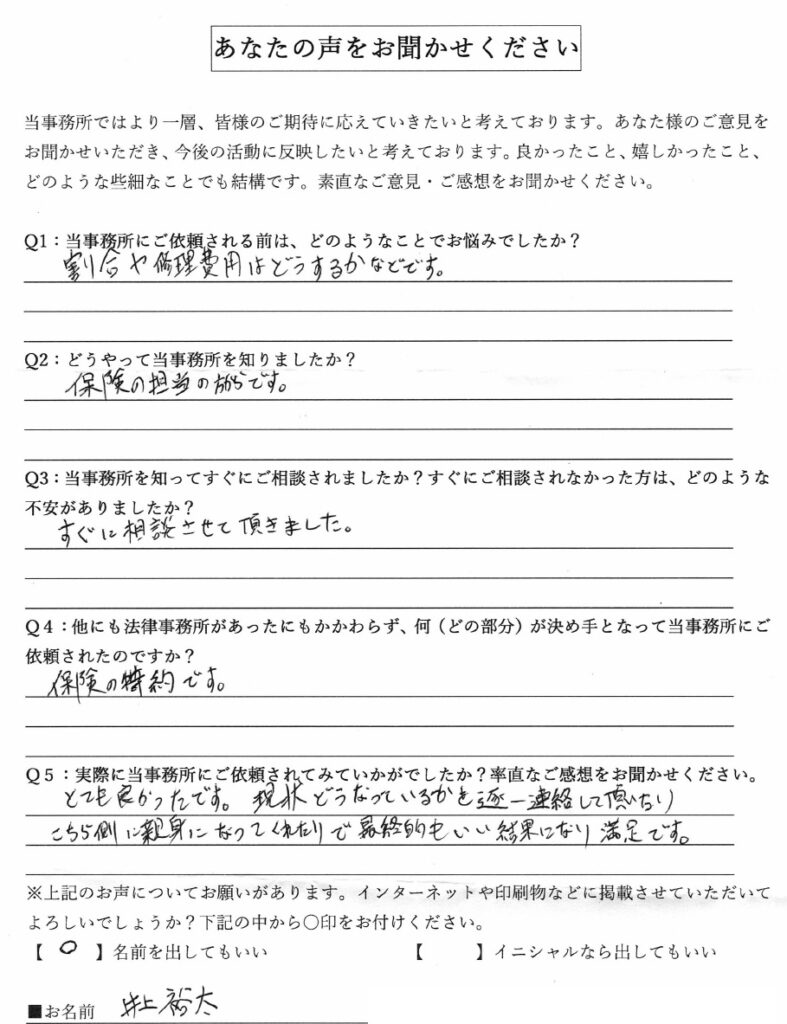 あなたの声をお聞かせください
当事務所ではより一層、皆様のご期待に応えていきたいと考えております。あなた様のご意見を
お聞かせいただき、今後の活動に反映したいと考えております。良かったこと、嬉しかったこと、
どのような些細なことでも結構です。素直なご意見・ご感想をお聞かせください。
Q1：当事務所にご依頼される前は、どのようなことでお悩みでしたか？
割合や修理費用はどうするかなどです。
Q2：どうやって当事務所を知りましたか？
保険の担当の方からです。
Q3：当事務所を知ってすぐにご相談されましたか？すぐにご相談されなかった方は、どのような
不安がありましたか？
すぐに相談させて頂きました。
Q４：他にも法律事務所があったにもかかわらず、何（どの部分）が決め手となって当事務所にご
依頼されたのですか？
保険の特約です。
Q５：実際に当事務所にご依頼されてみていかがでしたか？率直なご感想をお聞かせください。
とても良かったです。現状どうなっているかを逐一連絡して頂いたり
こちら側に親身になってくれたりで最終的もいい結果になり満足です。
※上記のお声についてお願いがあります。インターネットや印刷物などに掲載させていただいて
よろしいでしょうか？下記の中から〇印をお付けください。
【 〇 】名前を出してもいい 【 】イニシャルなら出してもいい
■お名前 井上裕太